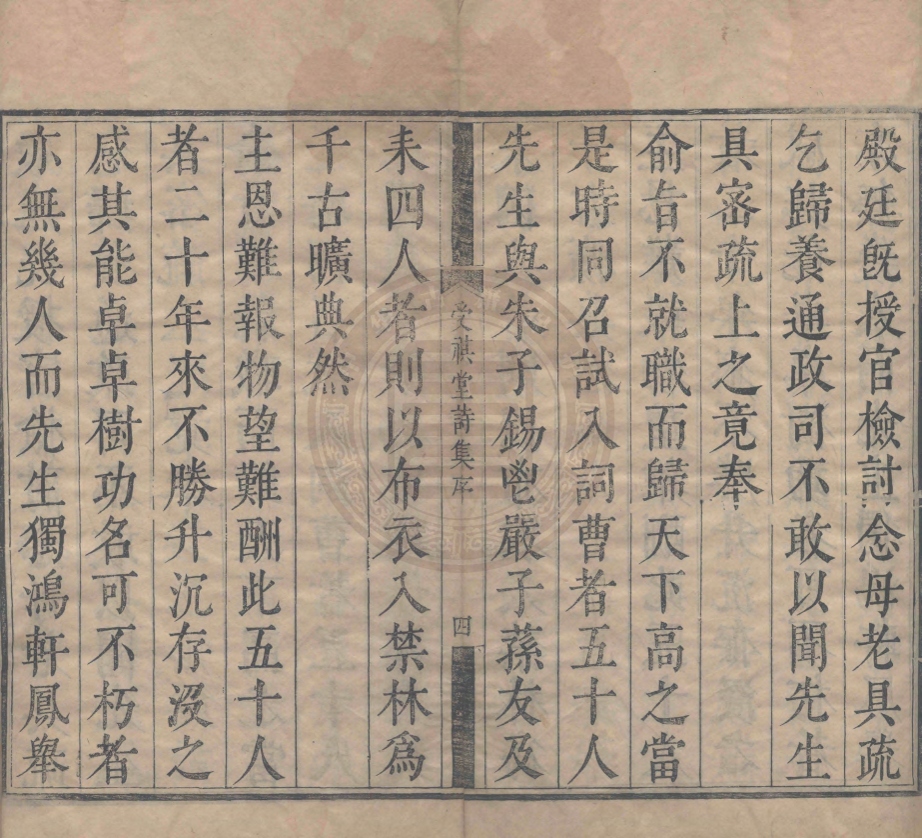 殿廷旣授官檢討念母老具疏
乞歸養通政司不敢以聞先生
具密疏上之竟奉
俞旨不就職而歸天下高之當
是時同召試入詞曹者五十人
先生與朱子錫鬯嚴子蓀友及
受祺堂詩集序
四
耒四人者則以布衣入禁林爲
千古曠典然
主恩難報物望難酬此五十人
者二十年來不勝升沉存沒之
感其能卓卓樹功名可不朽者
亦無幾人而先生獨鴻軒鳳舉